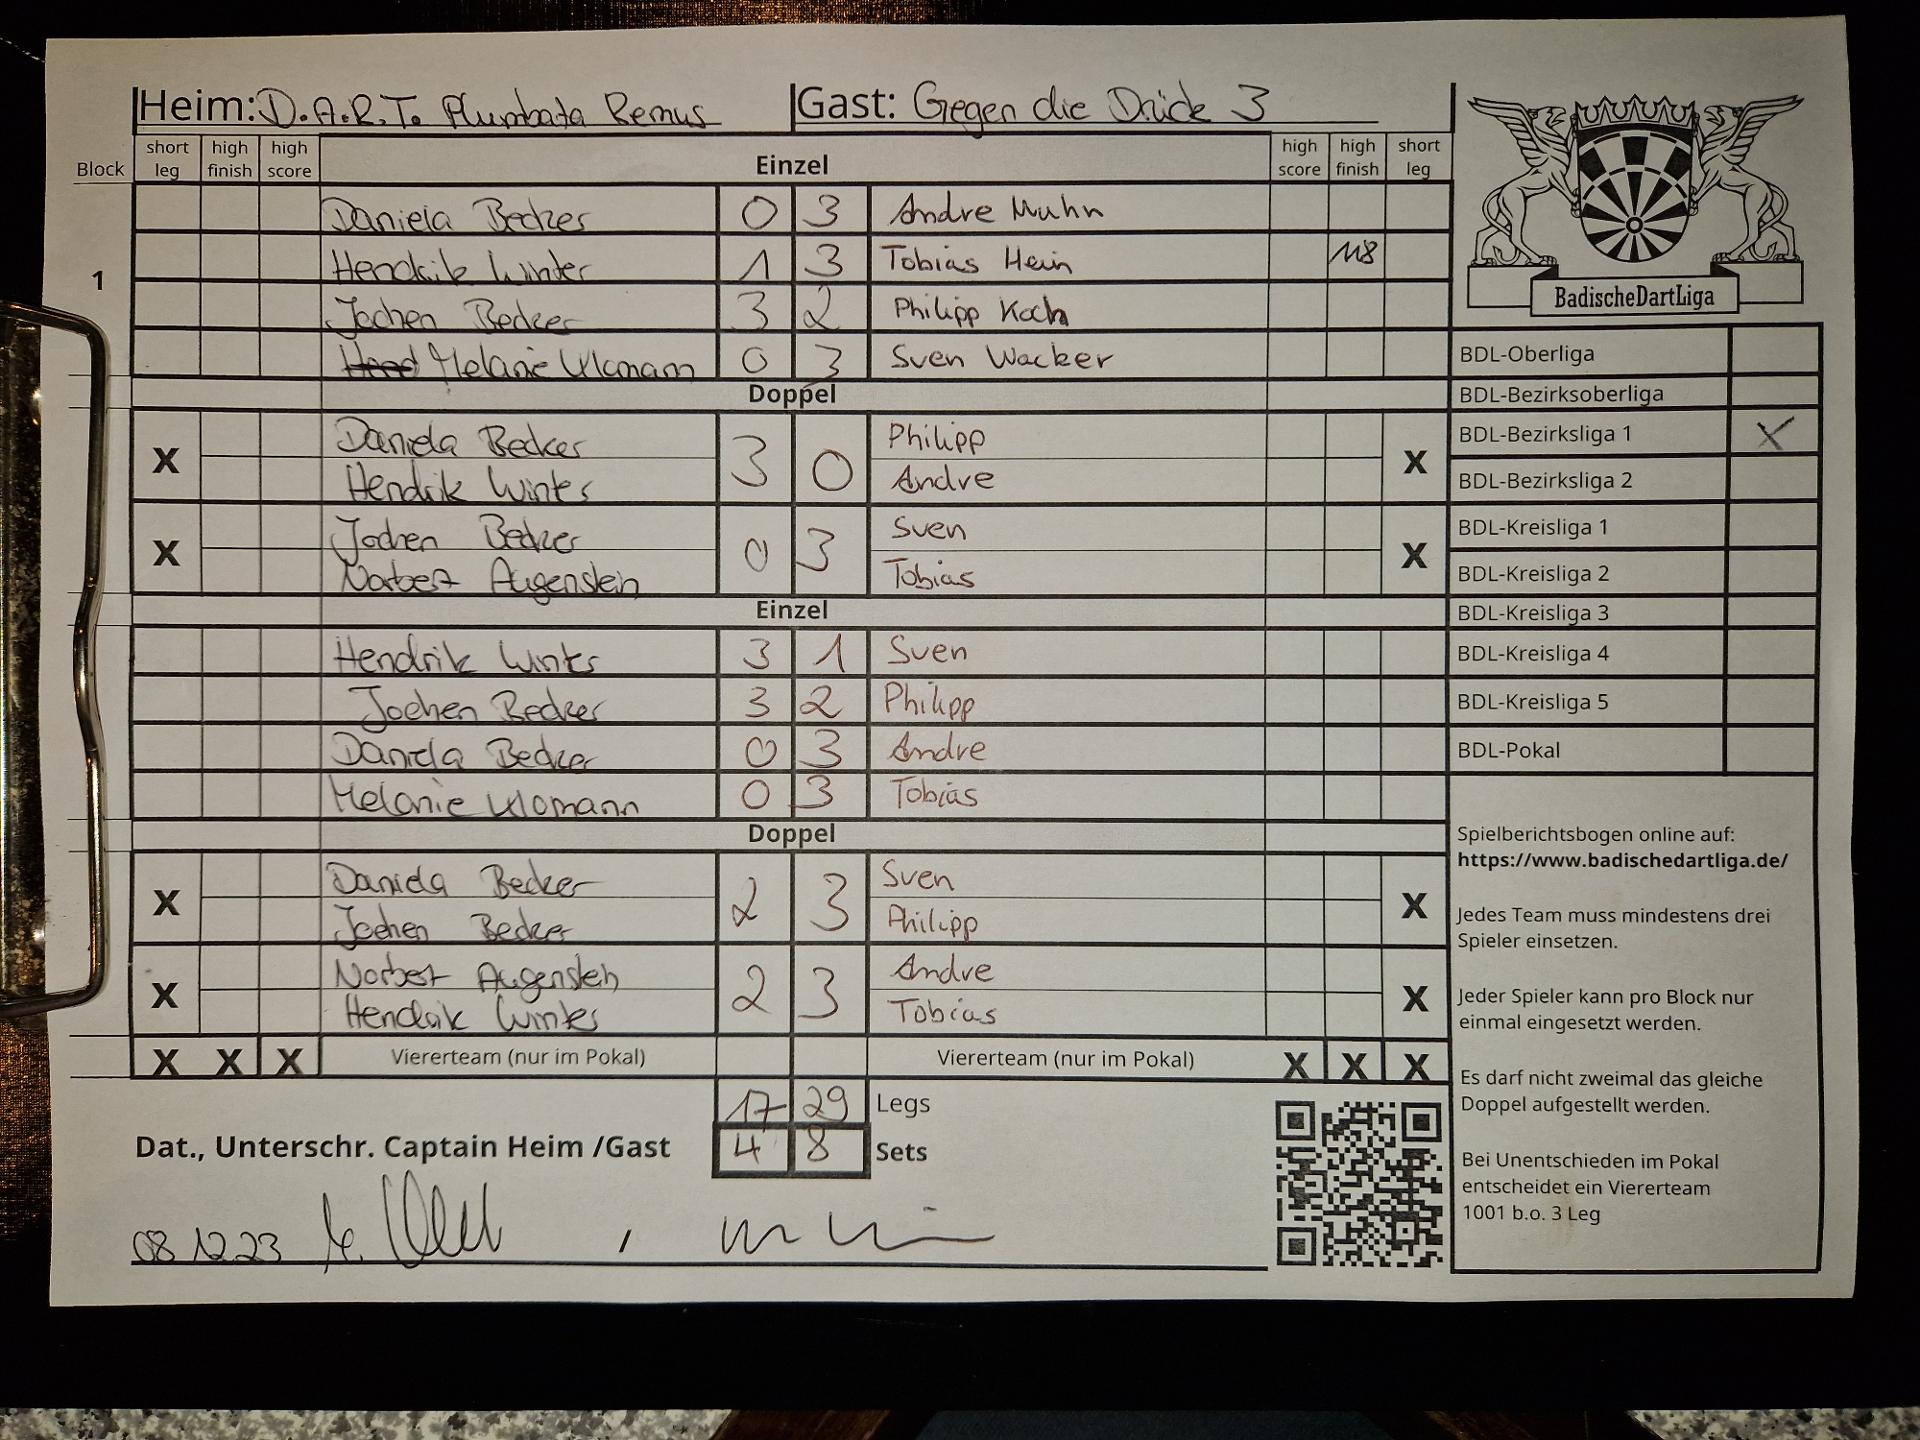 Heim: D.A.R.T. Plumbata Remus Gast: Gegen die Drück 3
Block short leg high finish high score Einzel high score high finish short leg
1
Daniela Becker 0 3 Andre Muhn
Hendrik Winter 1 3 Tobias Hein 118
Jochen Becker 3 2 Philipp Koch
Melanie Ulomann 0 3 Sven Wacker
Doppel
X Daniela Becker 3 0 Philipp X
Hendrik Winter Andre
X Jochen Becker 0 3 Sven X
Norbert Augenstein Tobias
Einzel
Hendrik Winter 3 1 Sven
Jochen Becker 3 2 Philipp
Daniela Becker 0 3 Andre
Melanie Ulomann 0 3 Tobias
Doppel
X Daniela Becker 2 3 Sven X
Jochen Becker Philipp
X Norbert Augenstein 2 3 Andre X
Hendrik Winter Tobias
X X X Viererteam (nur im Pokal) Viererteam (nur im Pokal) X X X
17 29 Legs
Dat., Unterschr. Captain Heim /Gast 4 8 Sets
08.12.23
BadischeDartLiga
BDL-Oberliga
BDL-Bezirksoberliga
BDL-Bezirksliga 1 X
BDL-Bezirksliga 2
BDL-Kreisliga 1
BDL-Kreisliga 2
BDL-Kreisliga 3
BDL-Kreisliga 4
BDL-Kreisliga 5
BDL-Pokal
Spielberichtsbogen online auf:
https://www.badischedartliga.de/
Jedes Team muss mindestens drei
Spieler einsetzen.
Jeder Spieler kann pro Block nur
einmal eingesetzt werden.
Es darf nicht zweimal das gleiche
Doppel aufgestellt werden.
Bei Unentschieden im Pokal
entscheidet ein Viererteam
1001 b.o. 3 Leg